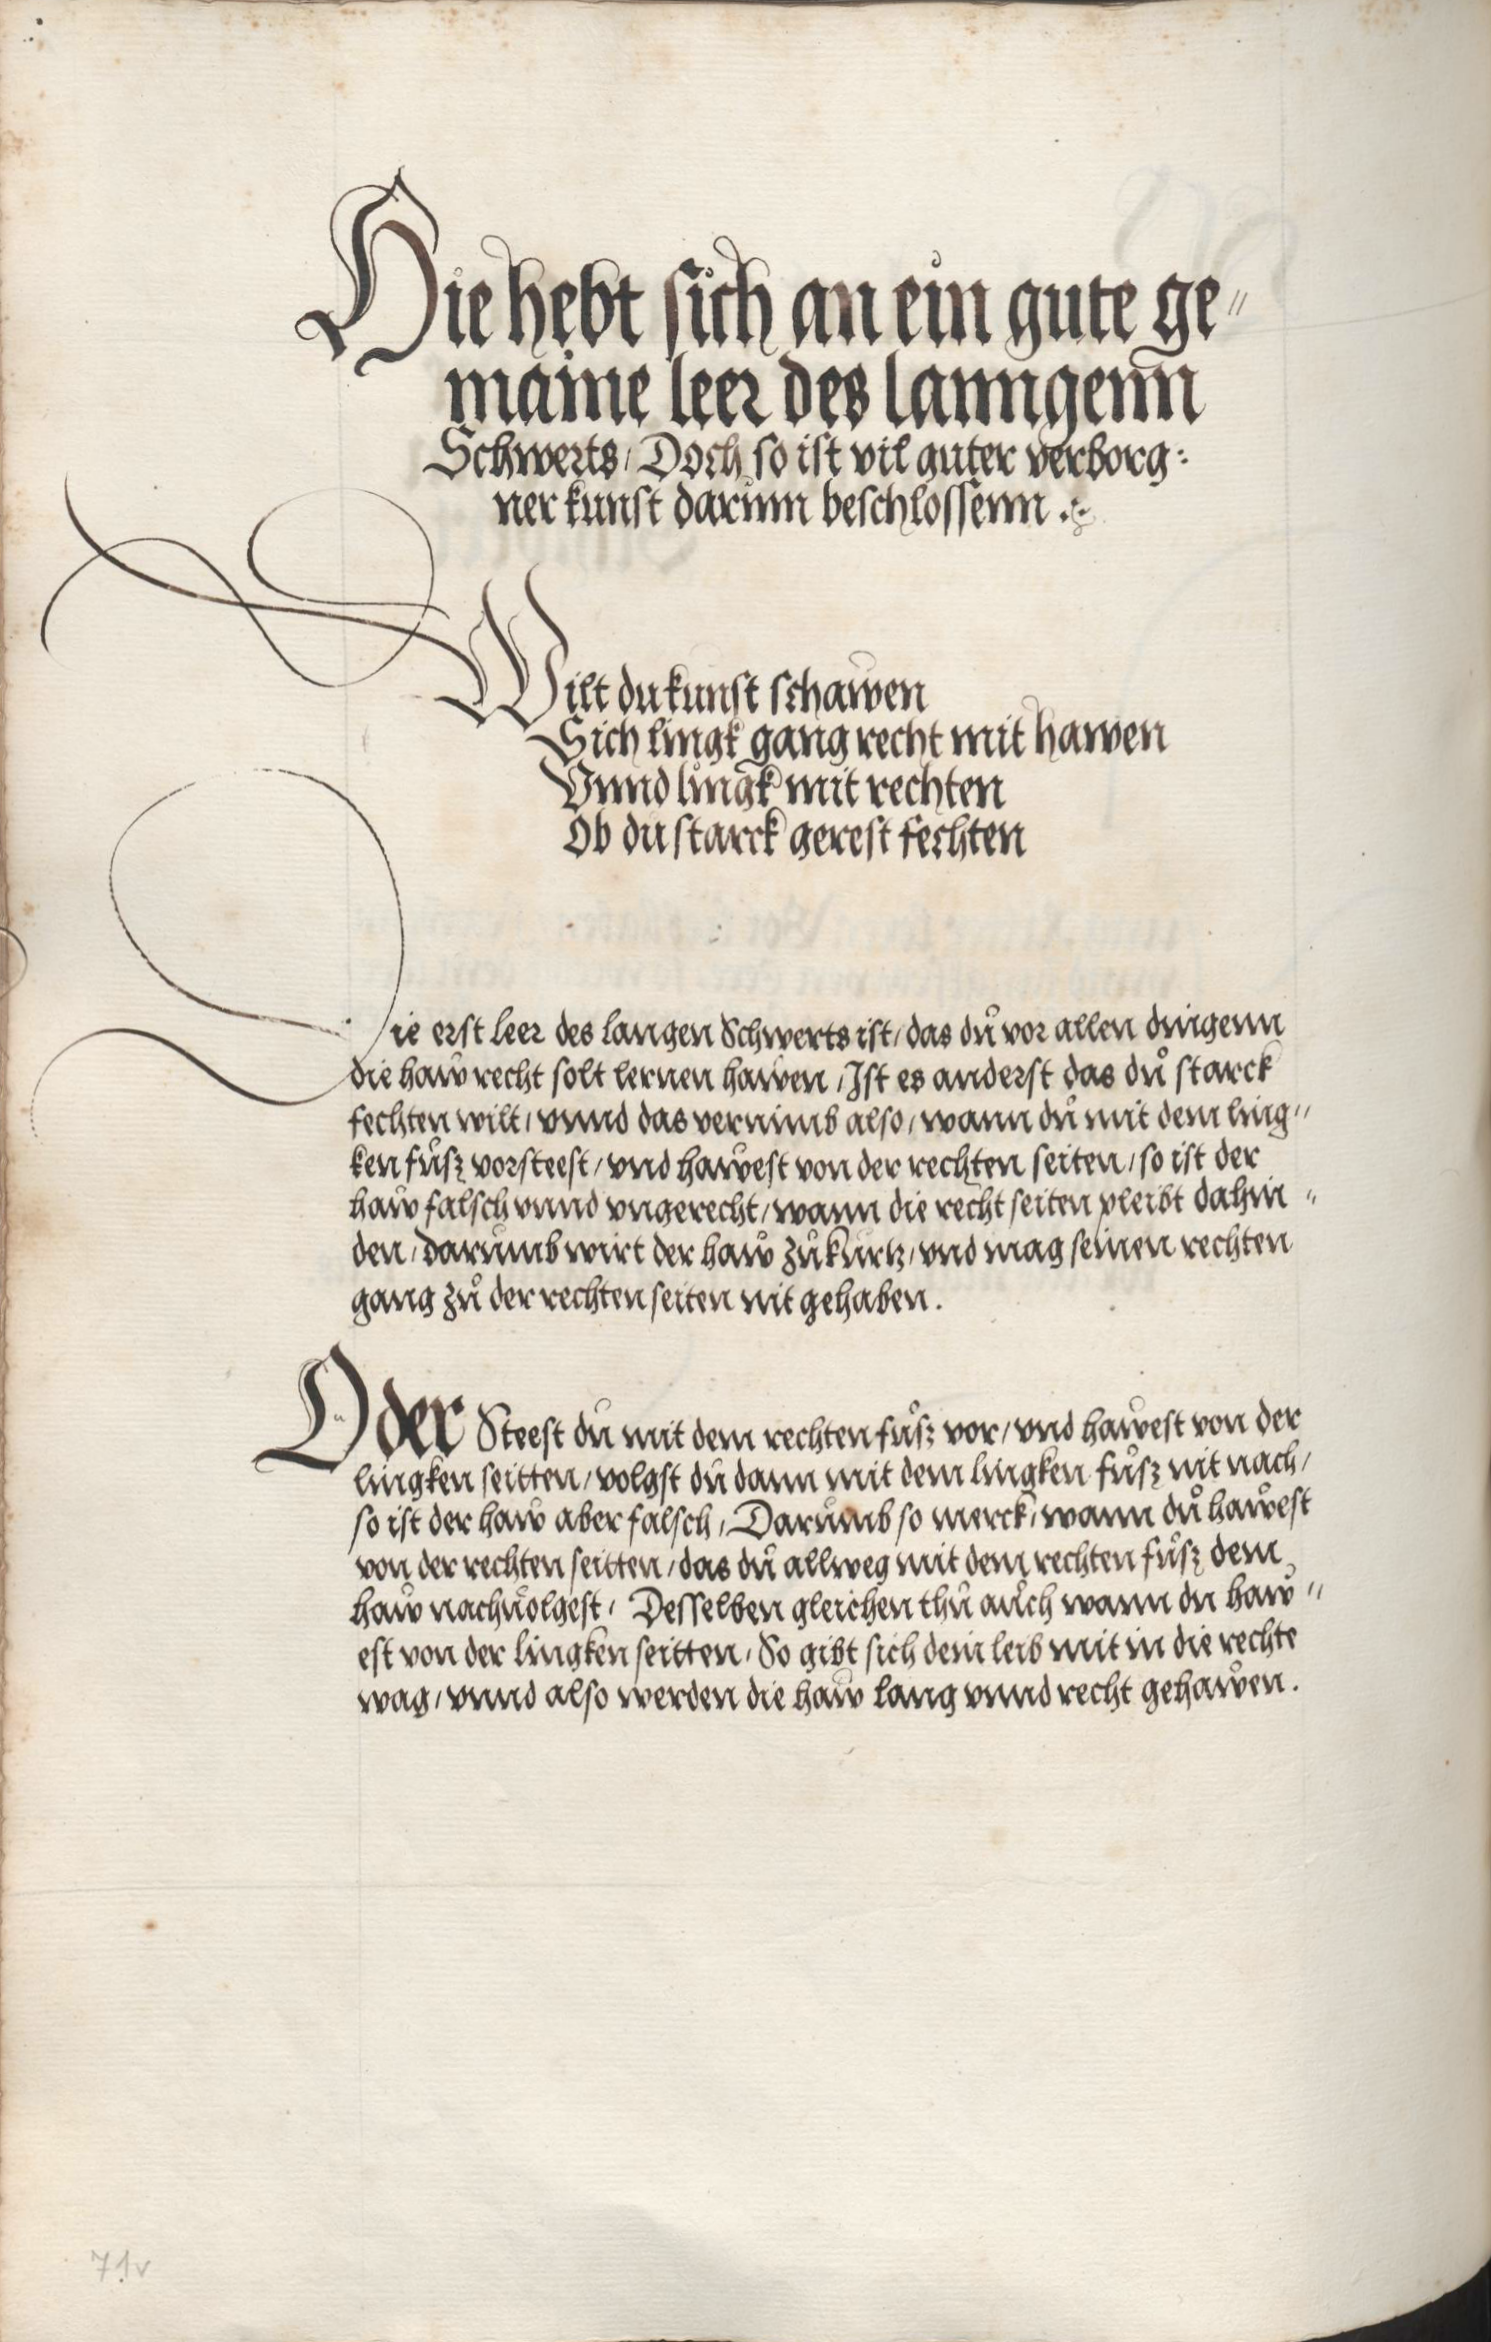 Hie hebt sich an ein gute ge〃
maine leer des lanngenn
Schwerts / Doch so ist vil guter verborg:
ner kunst darinn beschlossenn .
Wilt du kunst schawen
Sich lingk gang recht mit hawen
Vnnd lingk mit rechten
Ob du starck gerest fechten
ie erst leer des langen Schwerts ist / das dů vor allen dingenn
die haw recht solt lernen hawen / Ist es anderst das dů starck
fechten wilt / vnnd das vernimb also / wann dů mit dem ling〃
ken fůsz vorsteest / vnd hawest von der rechten seiten / so ist der
haw falsch vnnd vngerecht / wann die recht seiten pleibt dahin〃
den / darumb wirt der haw zůkurtz / vnd mag seinen rechten
gang zů der rechten seiten nit gehaben .
Oder Steest du mit dem rechten fůsz vor / vnd hawest von der
lingken seitten / volgst dů dann mit dem lingken fůsz nit nach /
so ist der haw aber falsch / Darumb so merck / wann dů hawest
von der rechten seitten / das dů allweg mit dem rechten fůsz dem
haw nachuolgest / Desselben gleichen thů auch wann du haw〃
est von der lingken seitten / So gibt sich dein leib mit in die rechte
wag / vnnd also werden die haw lang vnnd recht gehawen .
71v